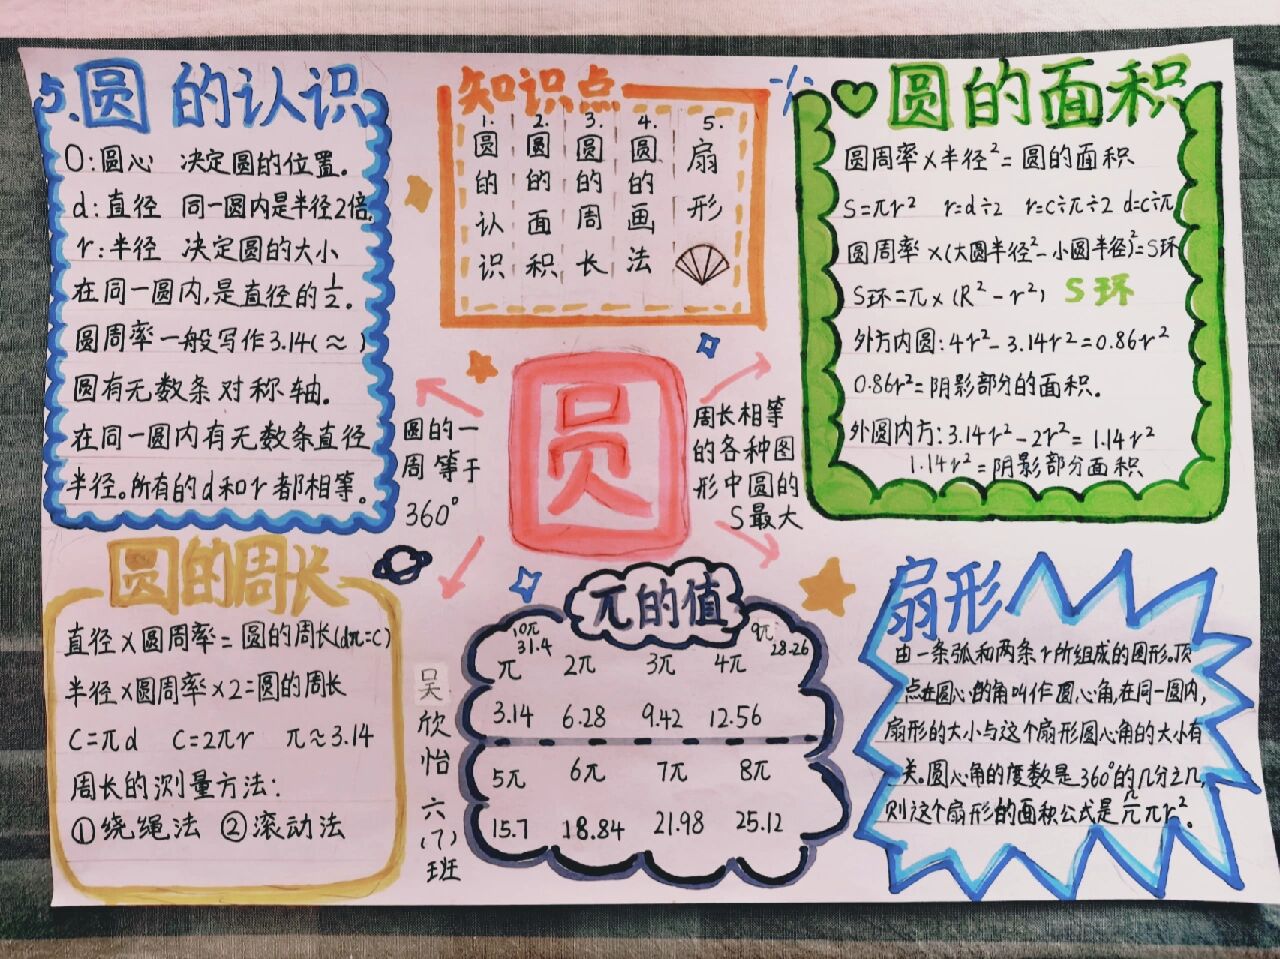 5.圆的认识
O:圆心 决定圆的位置。
d:直径 同一圆内是半径2倍。
r:半径 决定圆的大小
在同一圆内,是直径的1/2。
圆周率一般写作3.14(≈)
圆有无数条对称轴。
在同一圆内有无数条直径
半径。所有的d和r都相等。
知识点
1.圆的认识
2.圆的面积
3.圆的周长
4.圆的画法
5.扇形
圆的面积
圆周率×半径²=圆的面积
S=πr² r=d÷2 r=c÷π÷2 d=c÷π
圆周率×(大圆半径²-小圆半径)²=S环
S环=π×(R²-r²) S环
外方内圆:4r²-3.14r²=0.86r²
0.86r²=阴影部分的面积。
外圆内方:3.14r²-2r²=1.14r²
1.14r²=阴影部分面积
圆的一
周等于
360°
圆
周长相等
的各种图
形中圆的
S最大
圆的周长
直径×圆周率=圆的周长(dπ=c)
半径×圆周率×2=圆的周长
C=πd C=2πr π≈3.14
周长的测量方法:
①绕绳法 ②滚动法
吴欣怡 六(7)班
π的值
10π 9π
31.4 28.26
π 2π 3π 4π
3.14 6.28 9.42 12.56
5π 6π 7π 8π
15.7 18.84 21.98 25.12
扇形
由一条弧和两条r所组成的图形。顶
点在圆心的角叫作圆心角,在同一圆内,
扇形的大小与这个扇形圆心角的大小有
关。圆心角的度数是360°的几分之几,
则这个扇形的面积公式是πr²。